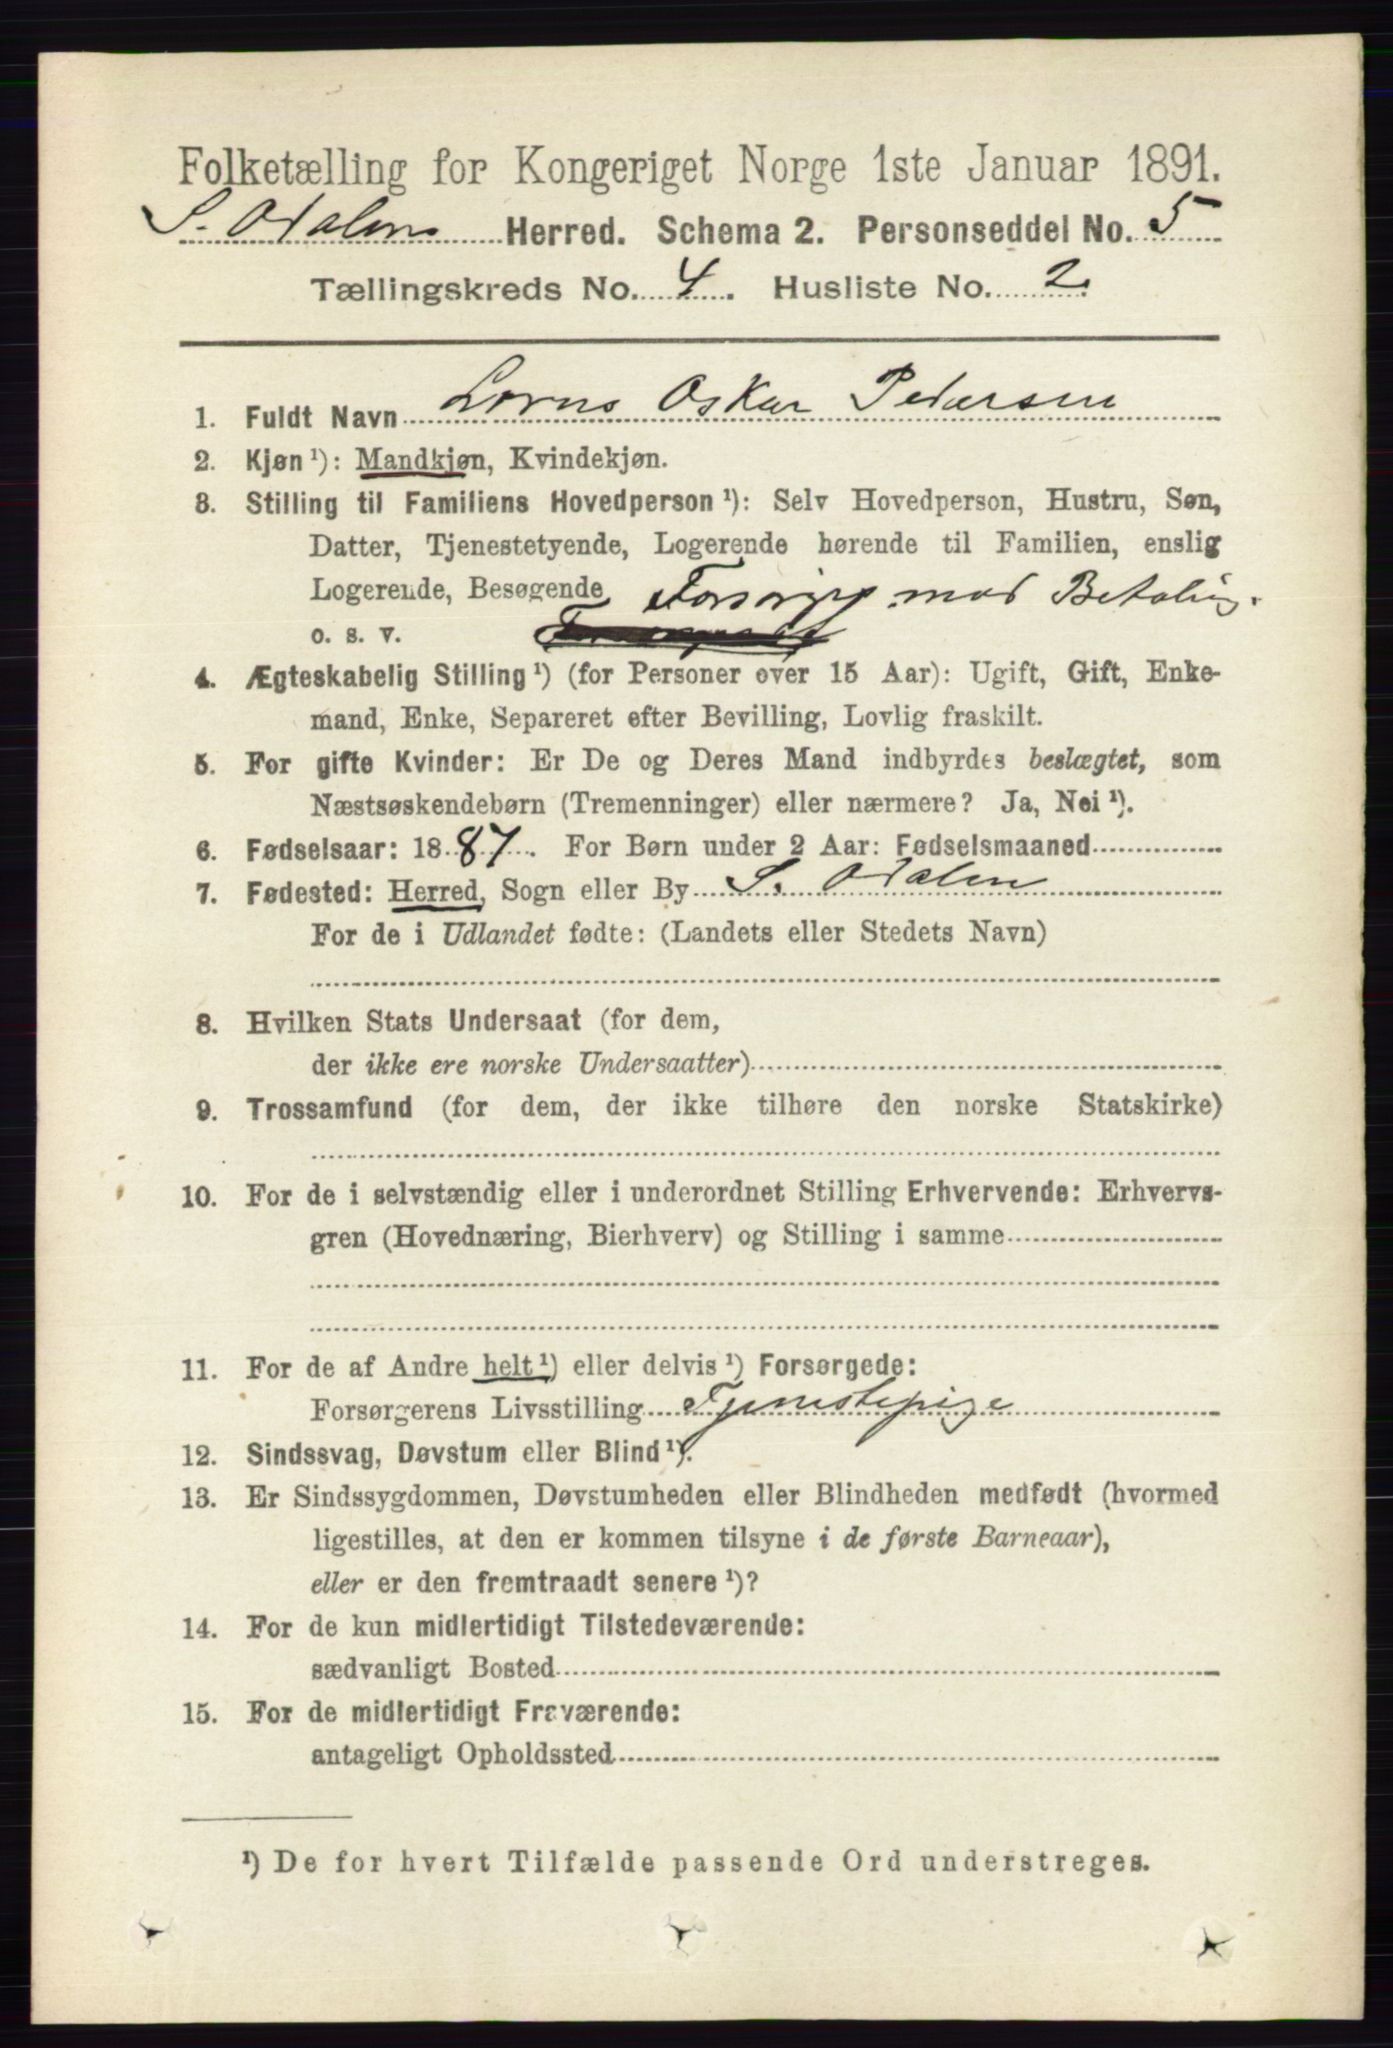 Folketælling for Kongeriget Norge 1ste Januar 1891.
S. Odalen Herred. Schema 2. Personseddel No. 5
Tællingskreds No. 4. Husliste No. 2.
1. Fuldt Navn Lorns Oskar Pedersen
2. Kjøn ¹): Mandkjøn, Kvindekjøn.
3. Stilling til Familiens Hovedperson ¹): Selv Hovedperson, Hustru, Søn,
Datter, Tjenestetyende, Logerende hørende til Familien, enslig
Logerende, Besøgende Forsørges mod Betaling.
o. s. v.
4. Ægteskabelig Stilling ¹) (for Personer over 15 Aar): Ugift, Gift, Enke-
mand, Enke, Separeret efter Bevilling, Lovlig fraskilt.
5. For gifte Kvinder: Er De og Deres Mand indbyrdes beslægtet, som
Næstsøskendebørn (Tremenninger) eller nærmere? Ja, Nei ¹).
6. Fødselsaar: 1887. For Børn under 2 Aar: Fødselsmaaned
7. Fødested: Herred, Sogn eller By S. Odalen
For de i Udlandet fødte: (Landets eller Stedets Navn)
8. Hvilken Stats Undersaat (for dem,
der ikke ere norske Undersaatter)
9. Trossamfund (for dem, der ikke tilhøre den norske Statskirke)
10. For de i selvstændig eller i underordnet Stilling Erhvervende: Erhvervs-
gren (Hovednæring, Bierhverv) og Stilling i samme
11. For de af Andre helt ¹) eller delvis ¹) Forsørgede:
Forsørgerens Livsstilling Tjenestepige
12. Sindssvag, Døvstum eller Blind ¹).
13. Er Sindssygdommen, Døvstumheden eller Blindheden medfødt (hvormed
ligestilles, at den er kommen tilsyne i de første Barneaar),
eller er den fremtraadt senere ¹)?
14. For de kun midlertidigt Tilstedeværende:
sædvanligt Bosted
15. For de midlertidigt Fraværende:
antageligt Opholdssted
¹) De for hvert Tilfælde passende Ord understreges.